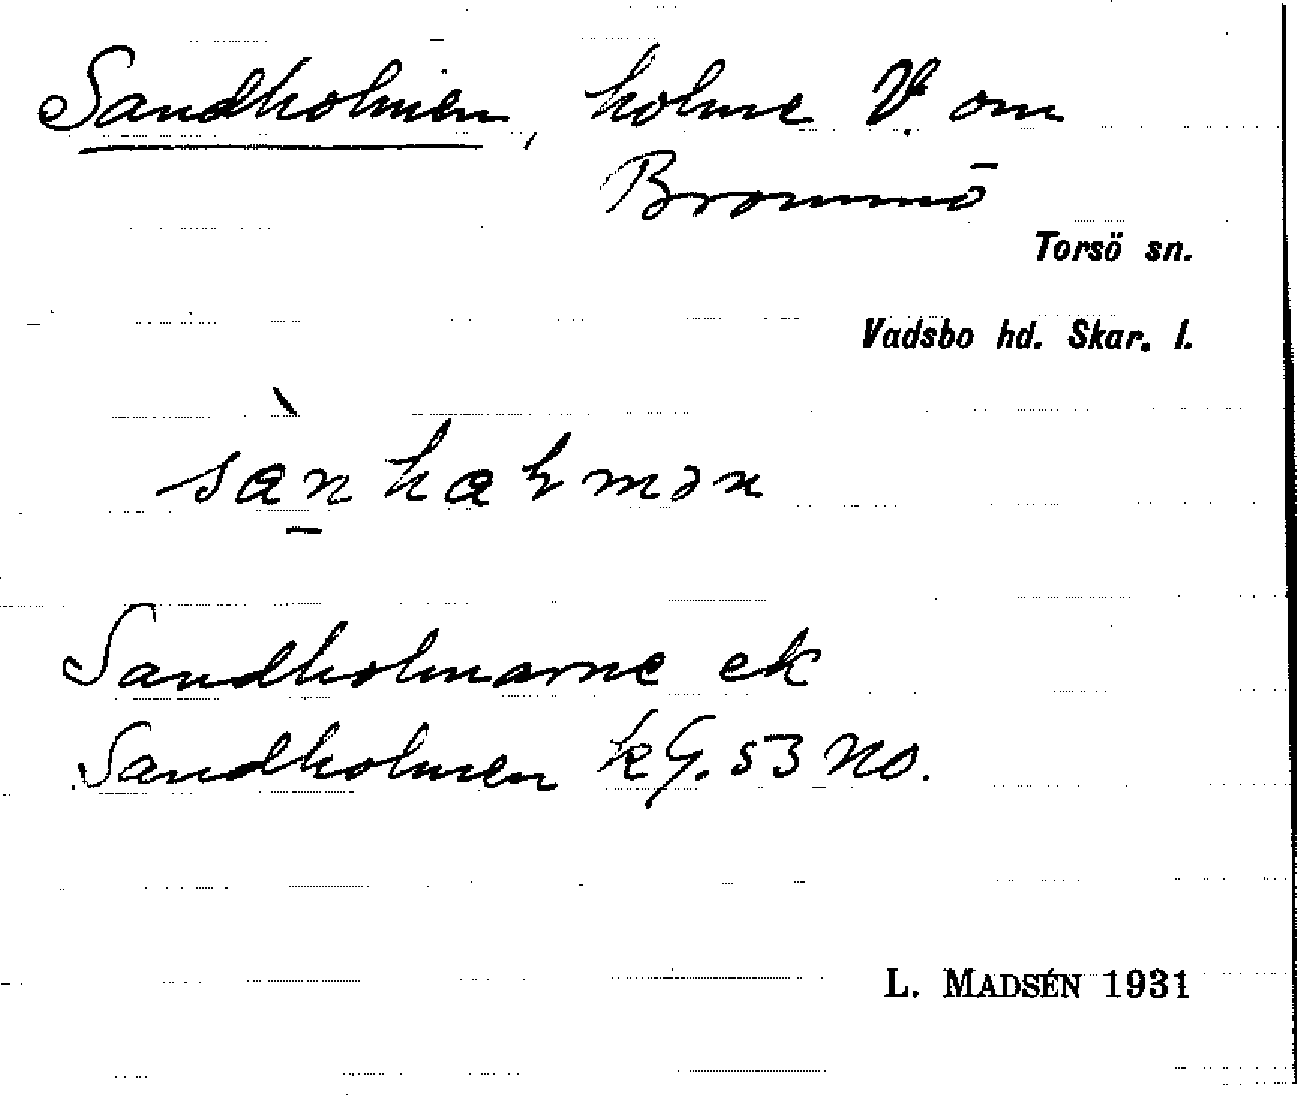 Sandholmen, holme V. om
Brommö
Torsö sn.
Vadsbo hd. Skar. l.
sànhaɫmən
Sandholmarne ek
Sandholmen kG. 53 NO.
L. MADSÉN 1931